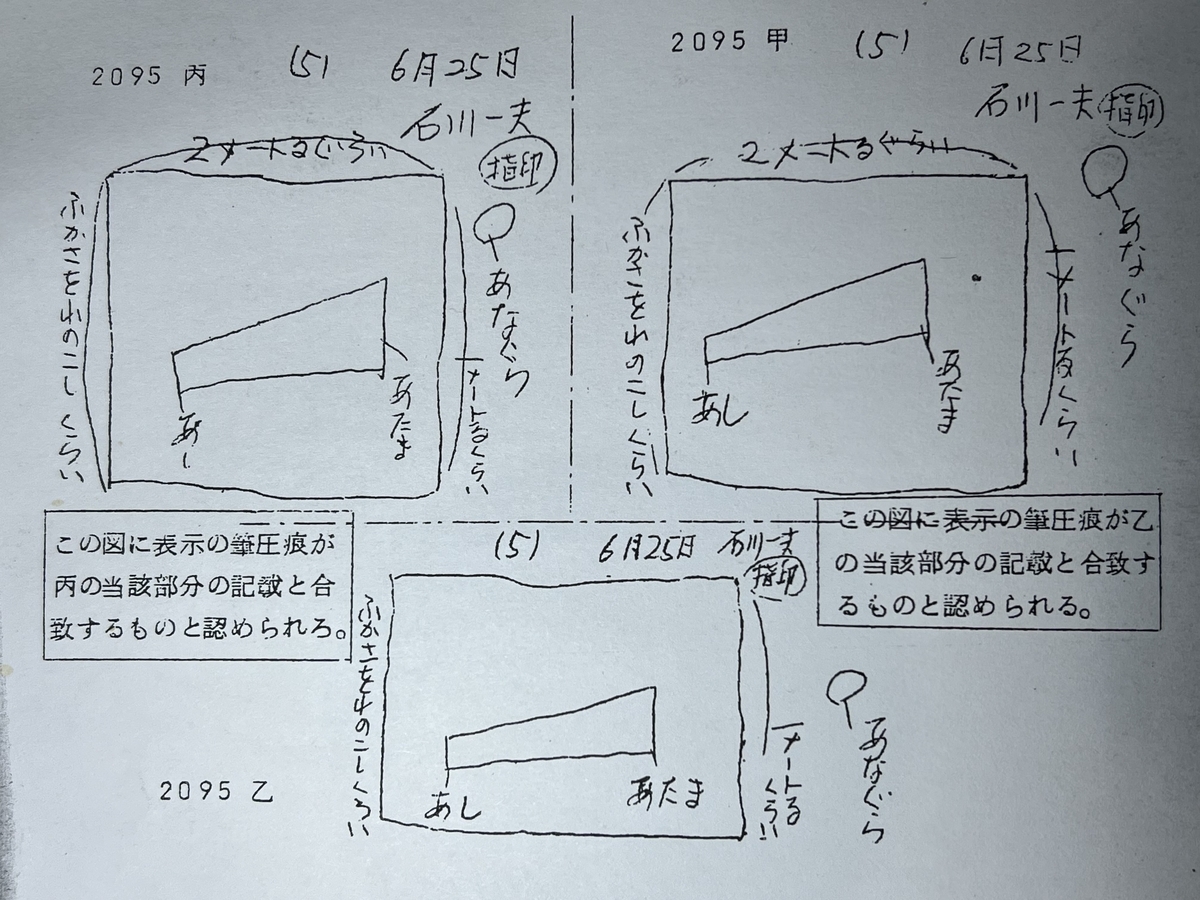 2095 丙
(5)
6月25日
石川一夫
指印
2メートるぐらい
ふかさをれのこしくらい
あなぐら
1メートるくらい
あたま
あし
2095 甲
(5)
6月25日
石川一夫
指印
2メートるぐらい
ふかさをれのこしくらい
あなぐら
1メートるくらい
あたま
あし
この図に表示の筆圧痕が
丙の当該部分の記載と合
致するものと認められろ。
この図に表示の筆圧痕が乙
の当該部分の記載と合致す
るものと認められる。
(5)
6月25日
石川一夫
指印
ふかさをれのこしくらい
1メートる
くらい
あなぐら
あし
あたま
2095 乙